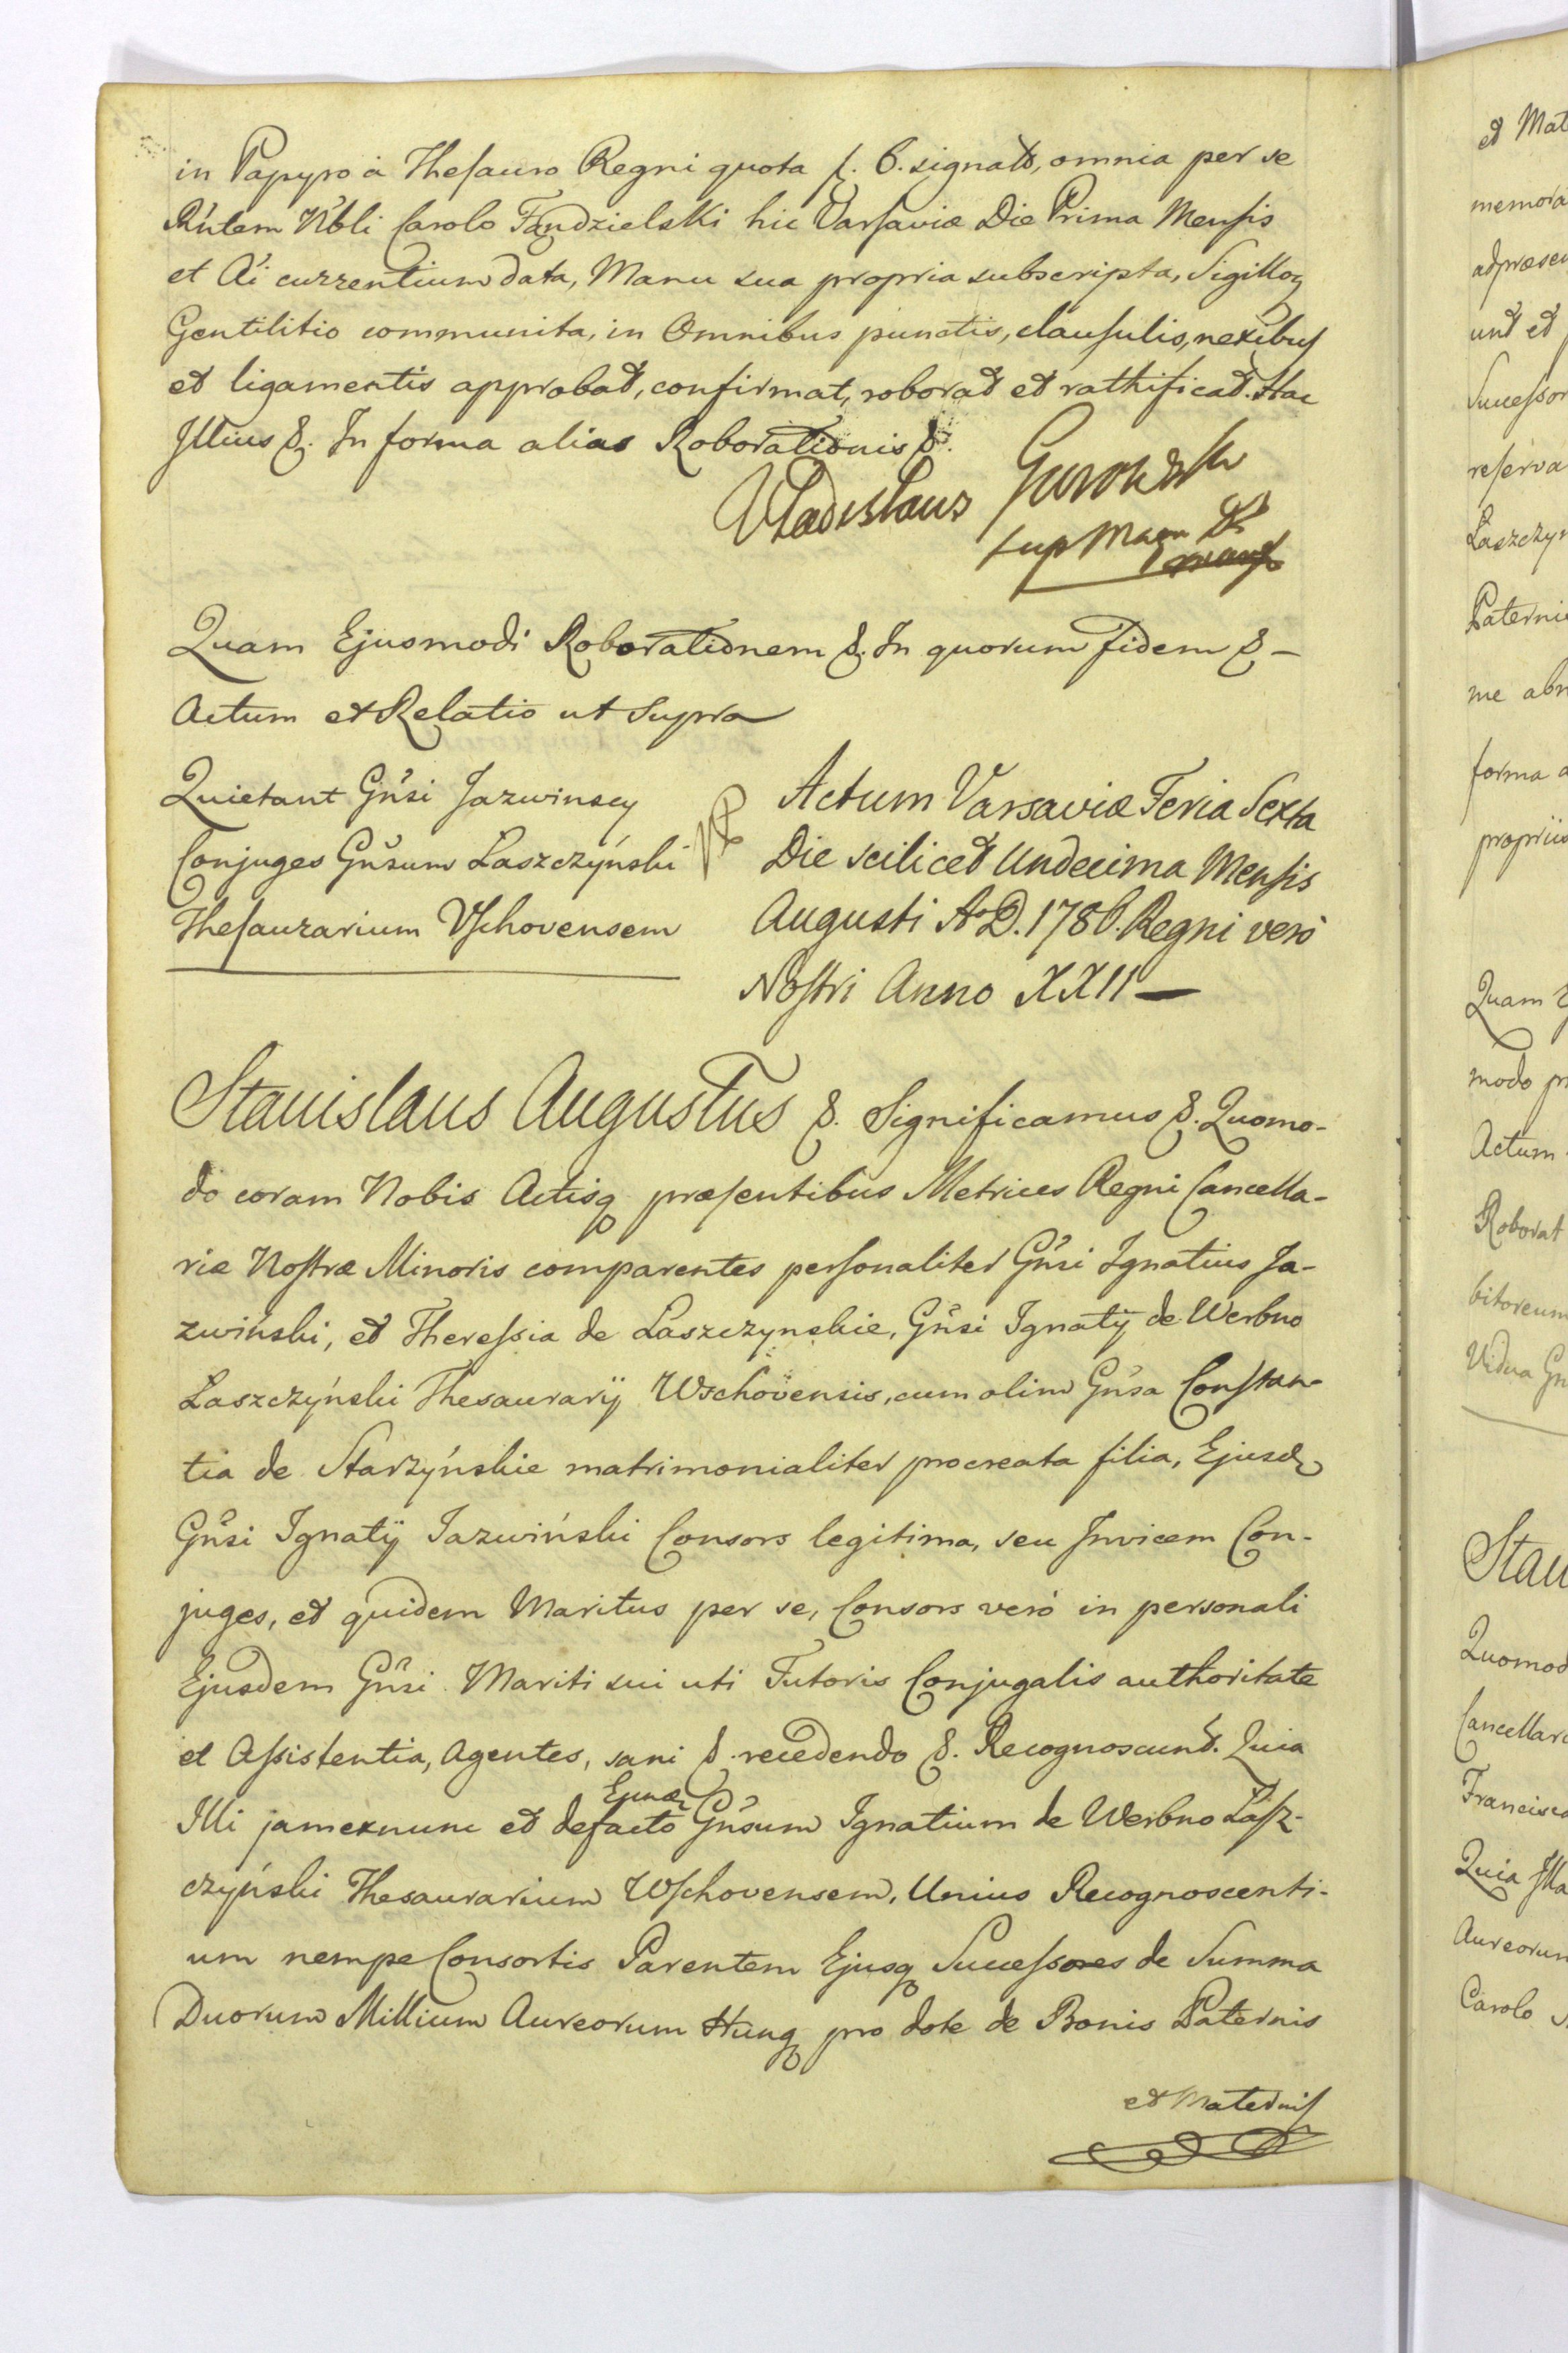 in Papyro à Thesauro Regni quota f. 6. signato, omnia per se
Rńtem Nbli Carolo Fandzielski hic Varsaviæ Die Prima Mensis
et Ai currentium data, Manu sua propria subscripta, Sigilloq
Gentilitio communita, in Omnibus punctis, clausulis, nexibus
et ligamentis approbat, confirmat, roborat et rathificat. Hac
Illius &. In forma alias Roborationis &.
Vladislaus Gurowski
Sup Mareu
Quam Ejusmodi Roborationem &. In quorum fidem & –
Actum et Relatio ut supra
Quietant Gńsi Jazwinscy
Conjuges Gńsum Laszczyński
Thesaurarium Vschovensem
Actum Varsaviæ Feria Sexta
Die scilicet Undecima Mensis
Augusti A°D. 1786. Regni verò
Nostri Anno XXII —
Stanislaus Augustus &. Significamus &. Quomo-
do coram Nobis Actisq præsentibus Metrices Regni Cancella-
riæ Nostræ Minoris comparentes personaliter Gńsi Ignatius Ja-
zwiński, et Theressia de Laszczynskie, Gńsi Ignatÿ de Werbno
Laszczyński Thesaurarÿ Wschovensis, cum olim Gńsa Constan-
tia de Starzyńskie matrimonialiter procreata filia, Ejusd
Gńsi Ignatÿ Jazwiński Consors legitima, seu Invicem Con-
juges, et quidem Maritus per se, Consors verò in personali
Ejusdem Gńsi Mariti sui uti Tutoris Conjugalis authoritate
et Assistentia, Agentes, sani &. recedendo &. Recognoscunt. Quia
Illi jamexnunc et defacto Gńsum Ignatium de Werbno Lasz-
czyński Thesaurarium Wschovensem, Unius Recognoscenti-
um nempe Consortis Parentem Ejusq Successores de Summa
Duorum Millium Aureorum Hung pro dote de Bonis Paternis
et Maternis
et Mat
memora
adpræsen
unt et
Successor
reserva
Laszczyń
Paterni
me abr
forma a
propriis
Quam E
modo pr
Actum
Roborat
bitoreum
Vidua Gń
Stan
Quomod
Cancellari
Francisco
Quia Illa
Aureorum
Carolo